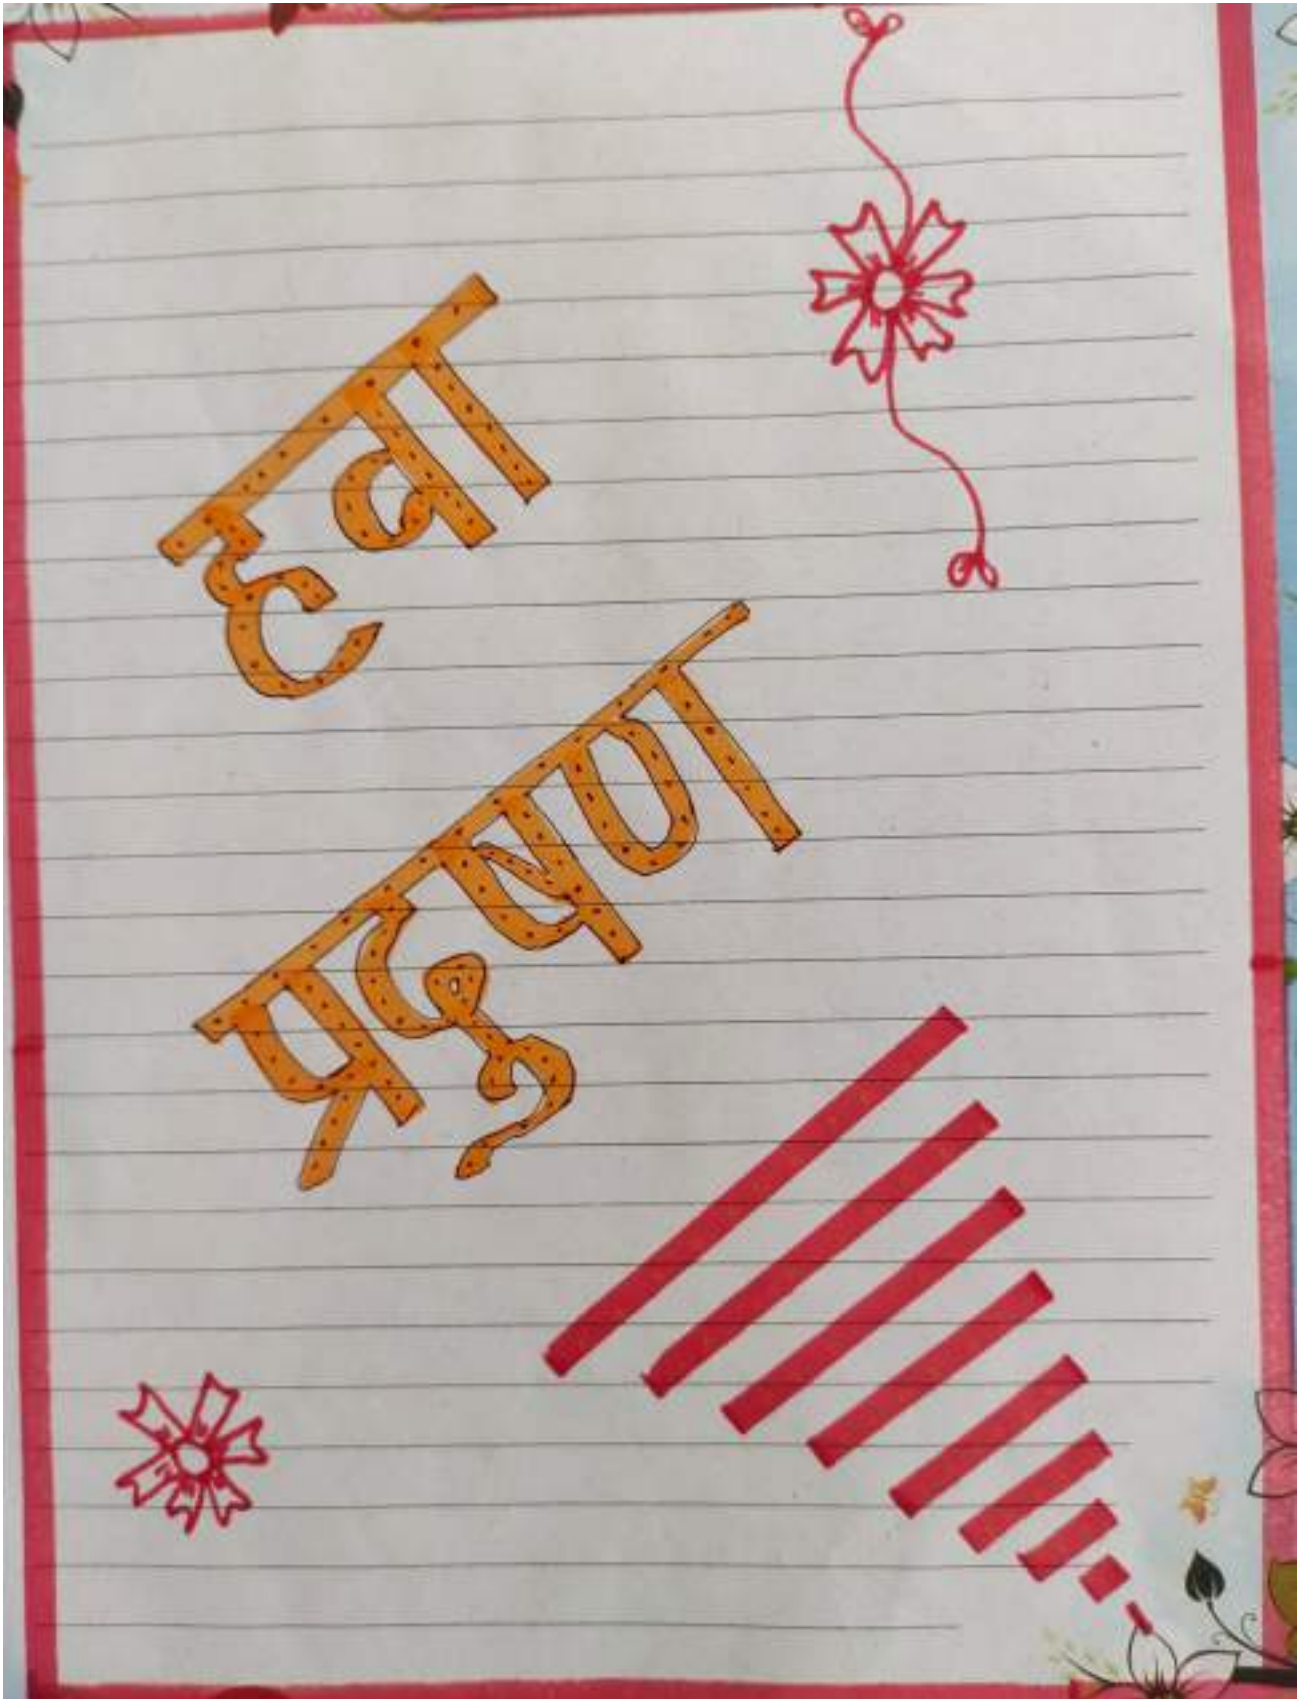 हवा
प्रदूषण